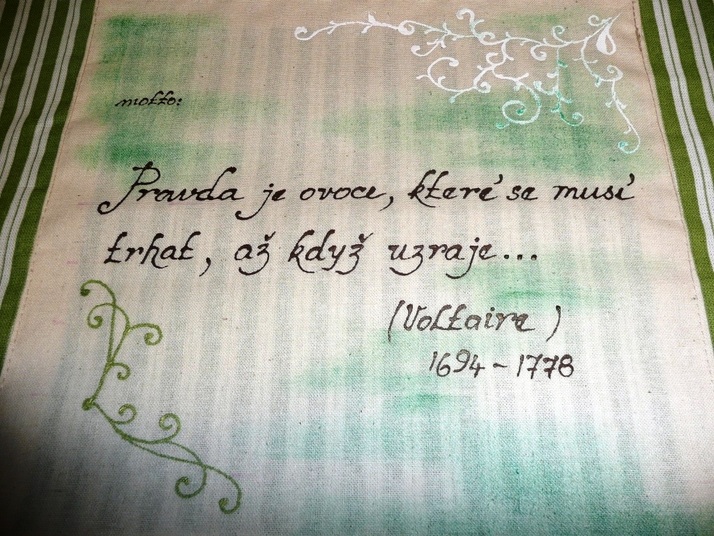 motto:
Pravda je ovoce, které se musí
trhat, až když uzraje...
(Voltaire)
1694 - 1778